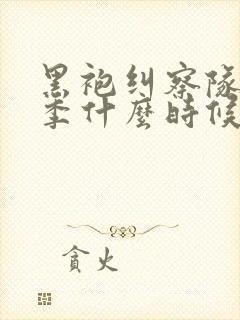 黑袍纠察队
季什麼時候
貪火